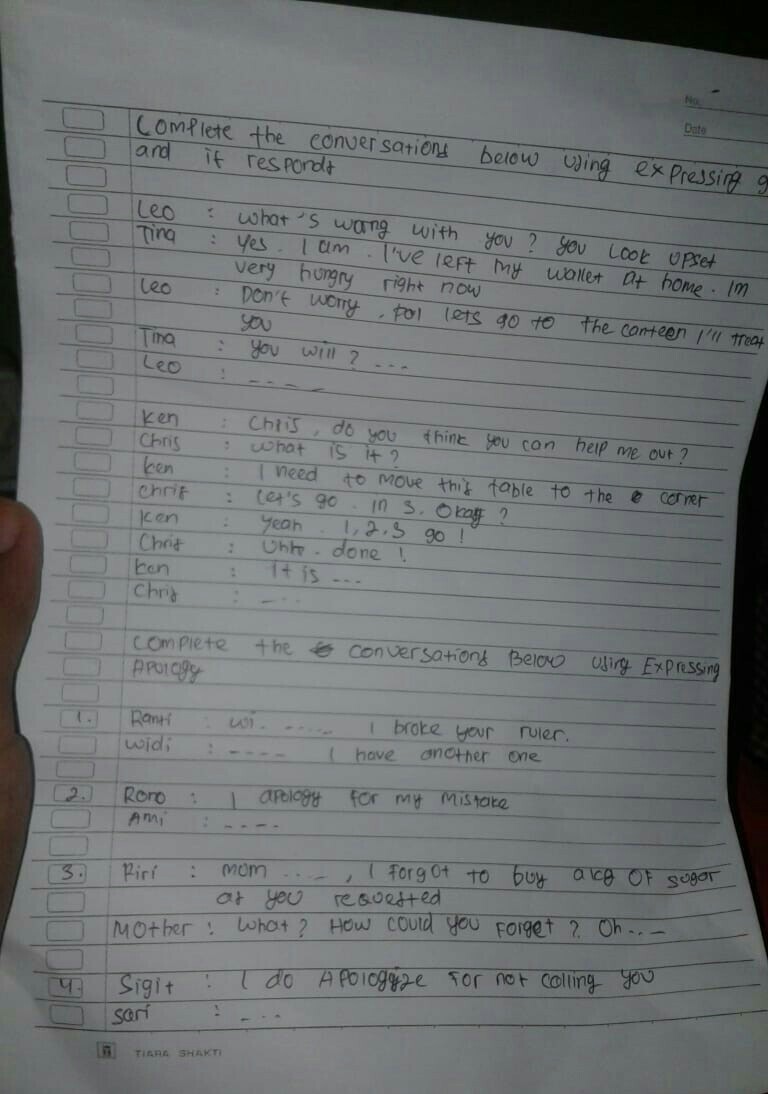 No.
Date
Complete the conversations below using expressing g
and if respondt
Leo : what's wrong with you? you look upset
Tina : Yes. I am. I've left my wallet at home. Im
very hungry right now
Leo : Don't worry, lets go to the canteen I'll treat
you
Tina : you will? ...
Leo : ----
Ken : Chris, do you think you can help me out?
Chris : what is it?
Ken : I need to move this table to the corner
Chris : Let's go. in 3. Okay?
Ken : yeah. 1,2,3 go!
Chris : done!
Ken : It is ...
Chris : ...
Complete the conversations Below using Expressing
Apology
1. Ranti : wi. ..... I broke your ruler.
Widi : ---- I have another one
2. Roro : I apology for my mistake
Ami : ----
3. Riri : mom ...., I forgot to buy a kg OF sugar
as you requested
Mother : What? How could you Forget? Oh...
4. Sigit : I do Apologize for not calling you
Sari : ...
TIARA SHAKTI